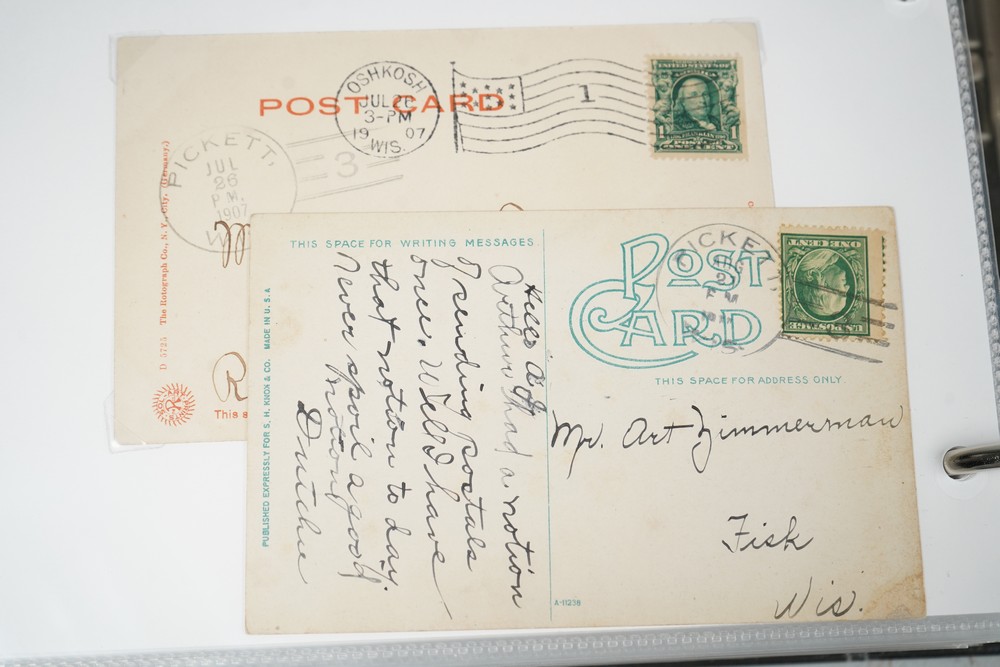 POST CARD
OSHKOSH
JUL 2
3-PM
19 07
WIS.
1
UNITED STATES OF AMERICA
1
1
POSTAGE
ONE CENT
PICKETT,
JUL
26
P M.
1907
W
3
D 5725 The Rotograph Co., N. Y. City. (Germany.)
M
R
R
This s
THIS SPACE FOR WRITING MESSAGES
Hello
Arthur had a notion
of sending postals
once, Well I have
that notion to day.
Never spoil a good
notion,
Dutchie
PUBLISHED EXPRESSLY FOR S. H. KNOX & CO. MADE IN U. S. A
POST
CARD
PICKETT
AUG
2
P M
IS
U.S. POSTAGE
ONE CENT
THIS SPACE FOR ADDRESS ONLY.
Mr. Art Zimmerman
Fisk
Wis.
A-11238